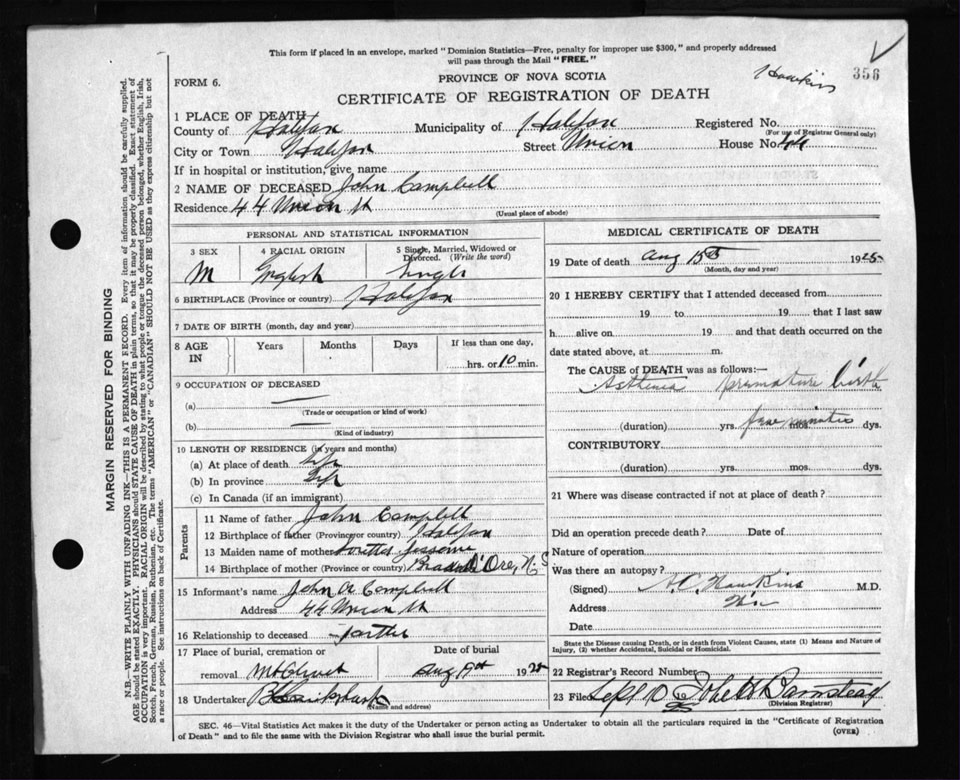 This form if placed in an envelope, marked "Dominion Statistics—Free, penalty for improper use $300," and properly addressed
will pass through the Mail "FREE."
Hawkins
356
FORM 6.
PROVINCE OF NOVA SCOTIA
CERTIFICATE OF REGISTRATION OF DEATH
1 PLACE OF DEATH
County of Halifax Municipality of Halifax Registered No.
(For use of Registrar General only)
City or Town Halifax Street Union House No. 44
If in hospital or institution, give name
2 NAME OF DECEASED John Campbell
Residence 44 Union St
(Usual place of abode)
PERSONAL AND STATISTICAL INFORMATION
3 SEX 4 RACIAL ORIGIN 5 Single, Married, Widowed or Divorced. (Write the word)
M English Single
6 BIRTHPLACE (Province or country) Halifax
7 DATE OF BIRTH (month, day and year)
8 AGE IN Years Months Days If less than one day,
hrs. or 10 min.
9 OCCUPATION OF DECEASED
(a) —
(Trade or occupation or kind of work)
(b) —
(Kind of industry)
10 LENGTH OF RESIDENCE (in years and months)
(a) At place of death Life
(b) In province Life
(c) In Canada (if an immigrant)
Parents
11 Name of father John Campbell
12 Birthplace of father (Province or country) Halifax
13 Maiden name of mother Jessome
14 Birthplace of mother (Province or country) D'Ore, N. S
15 Informant's name John A Campbell
Address 44 Union St
16 Relationship to deceased father
17 Place of burial, cremation or removal Date of burial
Mt Olivet Aug 19th 1925
18 Undertaker
(Name and address)
MEDICAL CERTIFICATE OF DEATH
19 Date of death Aug 15th 1925
(Month, day and year)
20 I HEREBY CERTIFY that I attended deceased from
19 to 19 that I last saw
h alive on 19 and that death occurred on the
date stated above, at m.
The CAUSE of DEATH was as follows:—
Asthenia Premature birth
(duration) yrs. mos. dys.
few minutes
CONTRIBUTORY
(duration) yrs. mos. dys.
21 Where was disease contracted if not at place of death?
Did an operation precede death? Date of
Nature of operation
Was there an autopsy?
(Signed) A. C. Hawkins M.D.
Address Hfx
Date
State the Disease causing Death, or in death from Violent Causes, state (1) Means and Nature of
Injury, (2) whether Accidental, Suicidal or Homicidal.
22 Registrar's Record Number
23 Filed Sept 10 19
(Division Registrar)
SEC. 46—Vital Statistics Act makes it the duty of the Undertaker or person acting as Undertaker to obtain all the particulars required in the "Certificate of Registration
of Death" and to file the same with the Division Registrar who shall issue the burial permit.
(OVER)
MARGIN RESERVED FOR BINDING
N.B.—WRITE PLAINLY WITH UNFADING INK—THIS IS A PERMANENT RECORD. Every item of information should be carefully supplied.
AGE should be stated EXACTLY. PHYSICIANS should STATE CAUSE OF DEATH in plain terms, so that it may be properly classified. Exact statement of
OCCUPATION is very important. RACIAL ORIGIN will be described by stating to what people or tongue the deceased person belonged, whether English, Irish,
Scotch, French, German, Russian, Ruthenian, etc. The terms "AMERICAN" or "CANADIAN" SHOULD NOT BE USED as they express citizenship but not
a race or people. See instructions on back of Certificate.